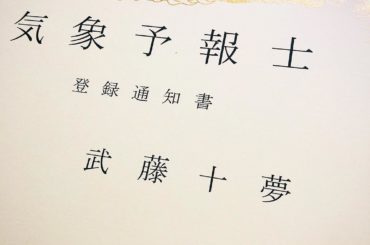 気象予報士
登録通知書
武藤十夢